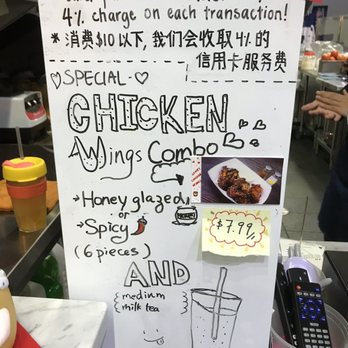 4% charge on each transaction!
* 消费$10以下, 我们会收取4%的
信用卡服务费
SPECIAL
CHICKEN
Wings Combo
Honey glazed
or
Spicy
(6 pieces)
$7.99
AND
medium
milk tea